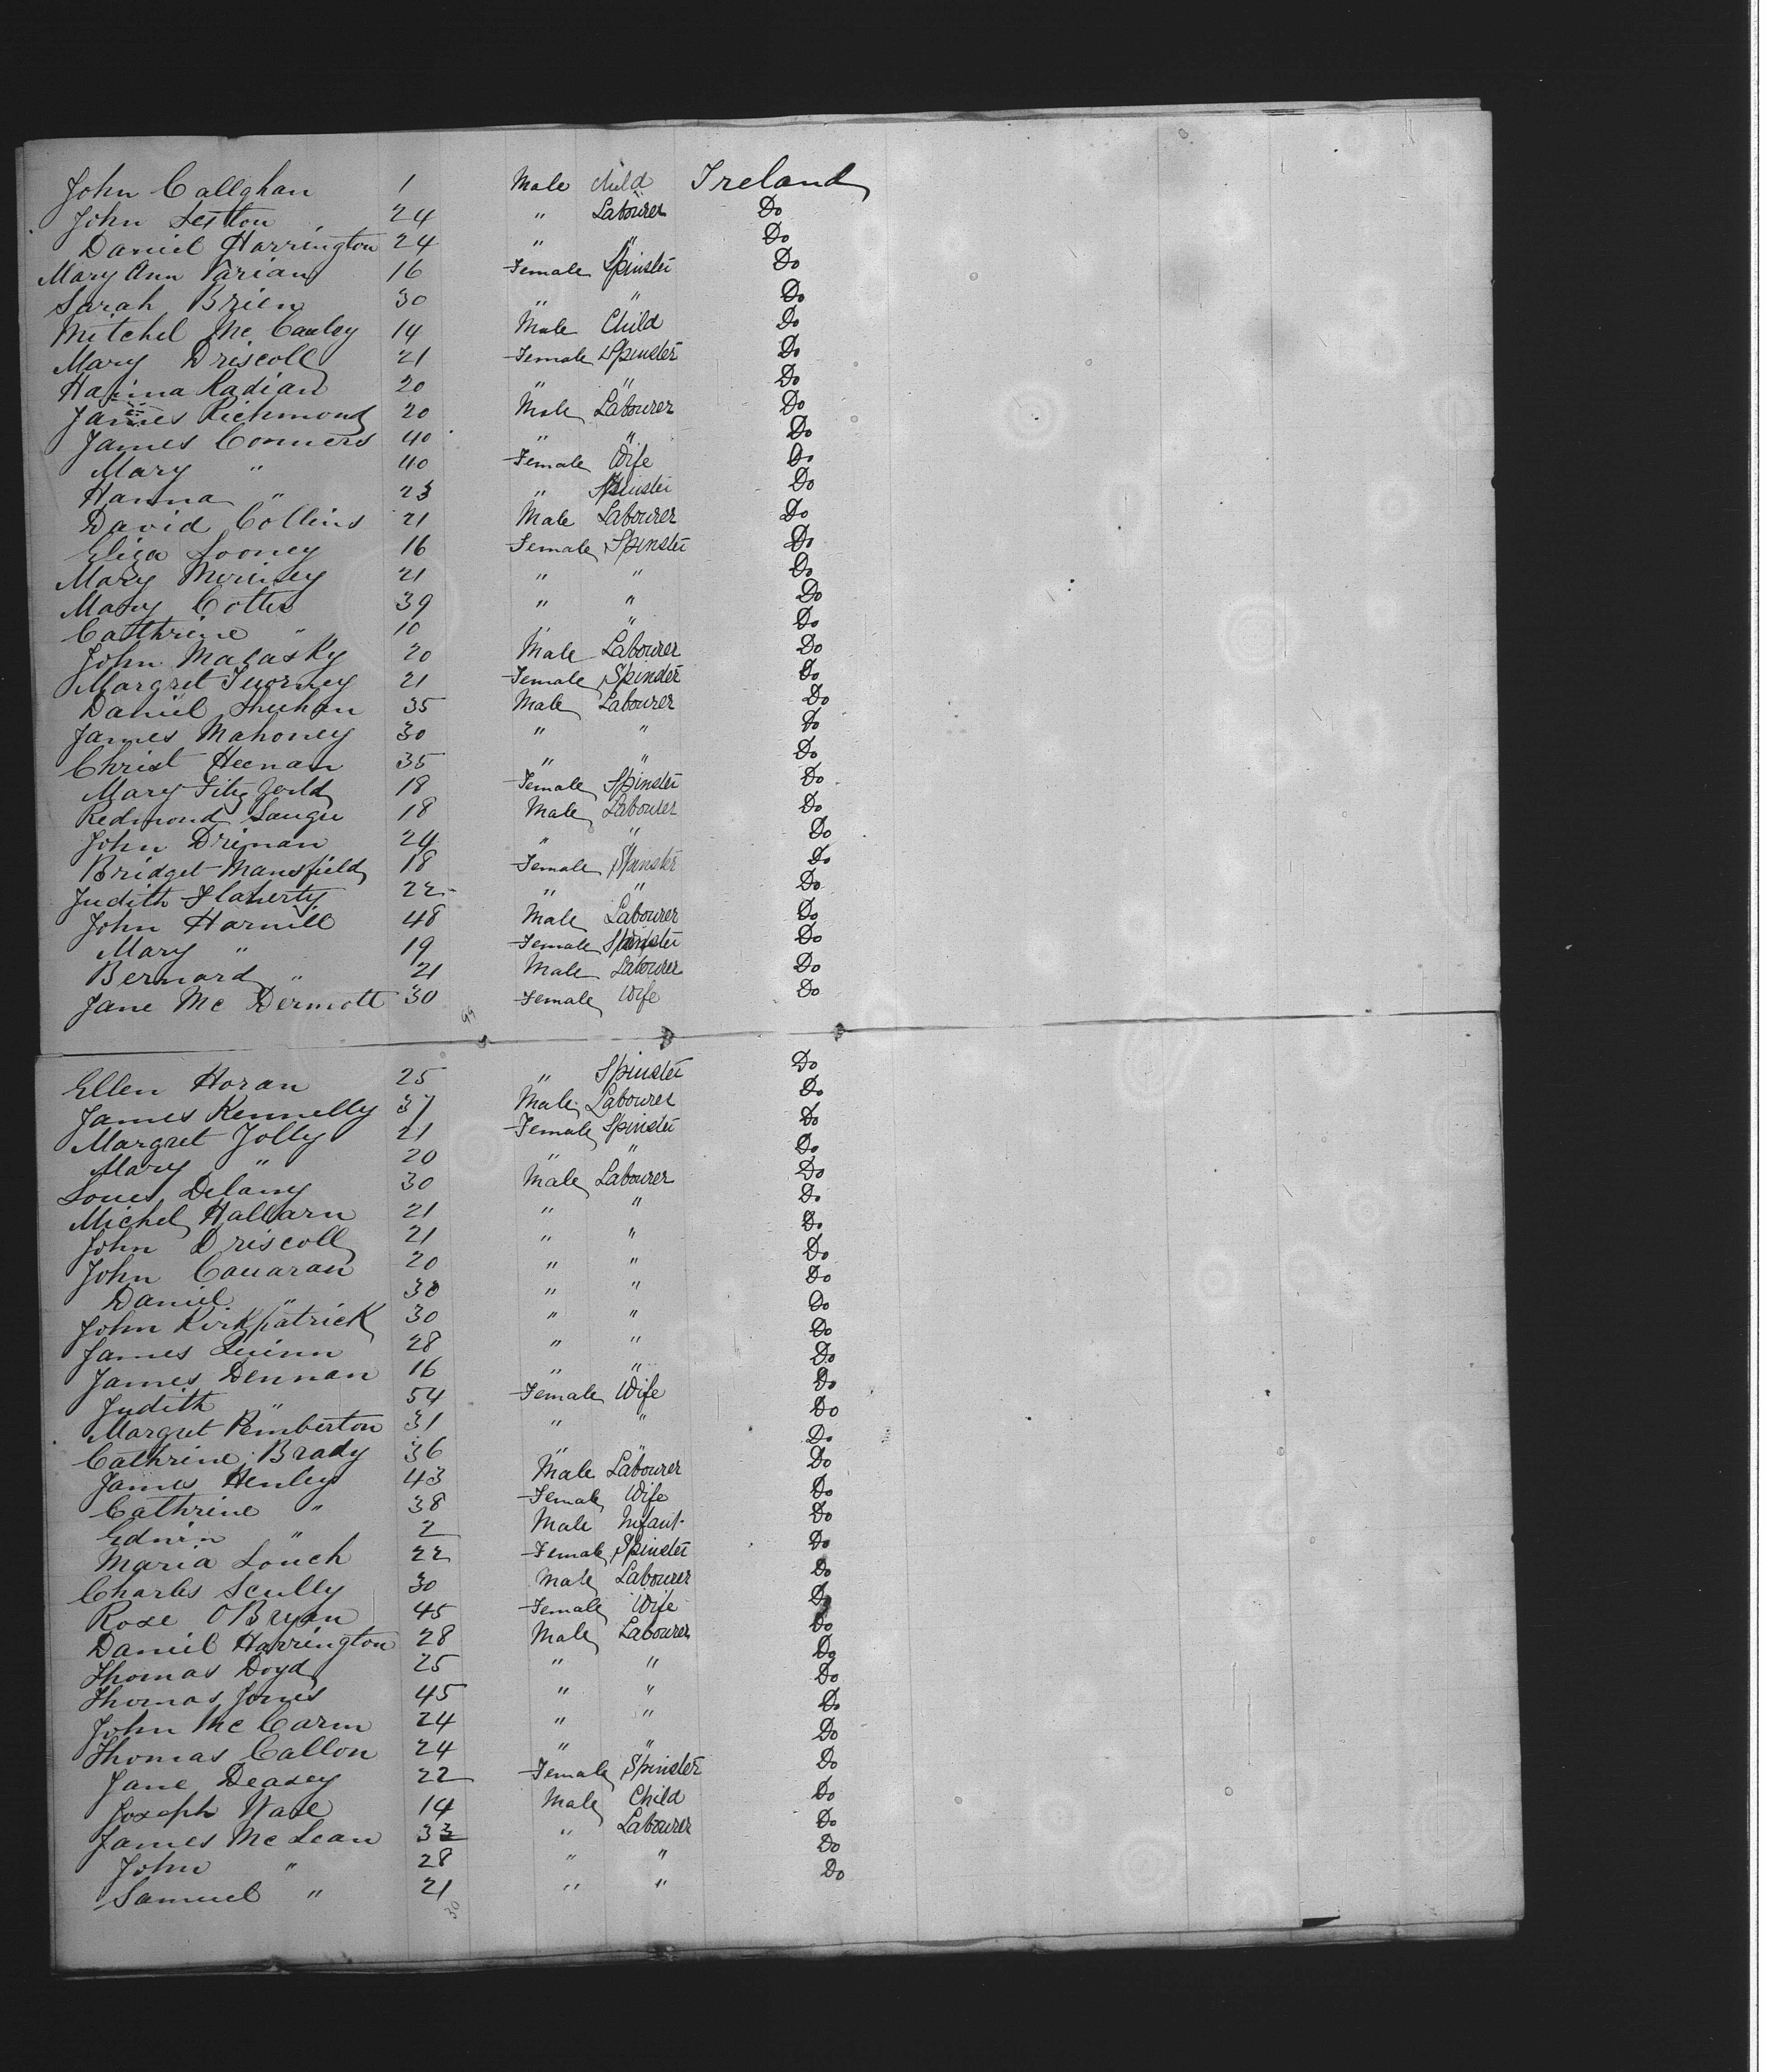 John Callghan 1 Male Child Ireland
John Sexton 24 " Labourer Do
Daniel Harrington 24 " " Do
Mary Ann Varian 16 Female Spinster Do
Sarah Brien 30 " " Do
Mitchel Mc Cauley 14 Male Child Do
Mary Driscoll 21 Female Spinster Do
Hanna Radian 20 " " Do
James Richmond 20 Male Labourer Do
James Conners 40 " " Do
Mary " 40 Female Wife Do
Hanna " 23 " Spinster Do
David Collins 21 Male Labourer Do
Eliza Looney 16 Female Spinster Do
Mary 21 " " Do
Mary Cotter 39 " " Do
Cathrine " 10 " " Do
John Malasky 20 Male Labourer Do
Margret Tuorney 21 Female Spinster Do
Daniel Sheehan 35 Male Labourer Do
James Mahoney 30 " " Do
Christ Heenan 35 " " Do
Mary Fitz Gerld 18 Female Spinster Do
Redmond 18 Male Labourer Do
John Drinan 24 " " Do
Bridget Mansfield 18 Female Spinster Do
Judith Flaherty 22 " " Do
John Harnill 48 Male Labourer Do
Mary " 19 Female Spinster Do
Bernard " 21 Male Labourer Do
Jane Mc Dermott 30 Female Wife Do
Ellen Horan 25 " Spinster Do
James Kennelly 37 Male Labourer Do
Margret Jolly 21 Female Spinster Do
Mary " 20 " " Do
Loues Delany 30 Male Labourer Do
Michel Hallarn 21 " " Do
John Driscoll 21 " " Do
John Canaran 20 " " Do
Daniel " 30 " " Do
John Kirkpatrick 30 " " Do
James Quinn 28 " " Do
James Dennan 16 " " Do
Judith " 54 Female Wife Do
Margret Pemberton 31 " " Do
Cathrine Brady 36 " " Do
James Henley 43 Male Labourer Do
Cathrine " 38 Female Wife Do
Edwin " 2 Male Infant Do
Maria Louch 22 Female Spinster Do
Charles Scully 30 Male Labourer Do
Rose OBryan 45 Female Wife Do
Daniel Harrington 28 Male Labourer Do
Thomas Doyd 25 " " Do
Thomas Jones 45 " " Do
John Mc Carm 24 " " Do
Thomas Callon 24 " " Do
Jane Deasey 22 Female Spinster Do
Joseph Wase 14 Male Child Do
James Mc Lean 33 " Labourer Do
John " 28 " " Do
Samuel " 21 " " Do